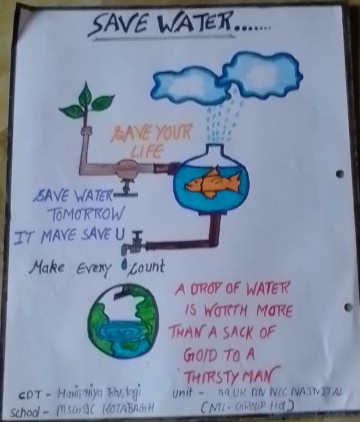 SAVE WATER.......
SAVE YOUR
LIFE
SAVE WATER
TOMORROW
IT MAVE SAVE U
Make Every Count
A DROP OF WATER
IS WORTH MORE
THAN A SACK OF
GOLD TO A
THIRSTY MAN
CDT -
unit - UK BN NCC NAINITAL
School - KOTABAGH